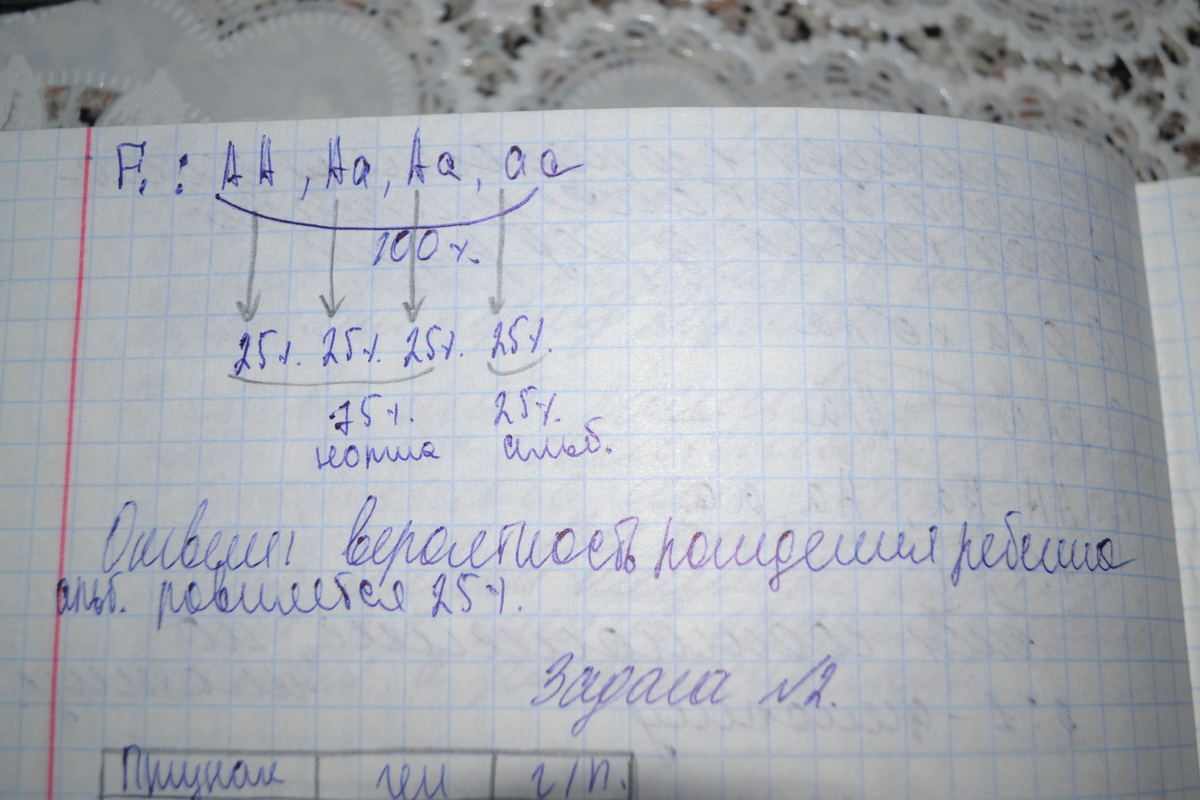 F₁ : АА, Аа, Аа, аа
100%.
25%. 25%. 25%. 25%.
75%. 25%.
норма альб.
Ответ: вероятность рождения ребенка
альб. ровняется 25%.
Задача №2.
Признак ген г/п.